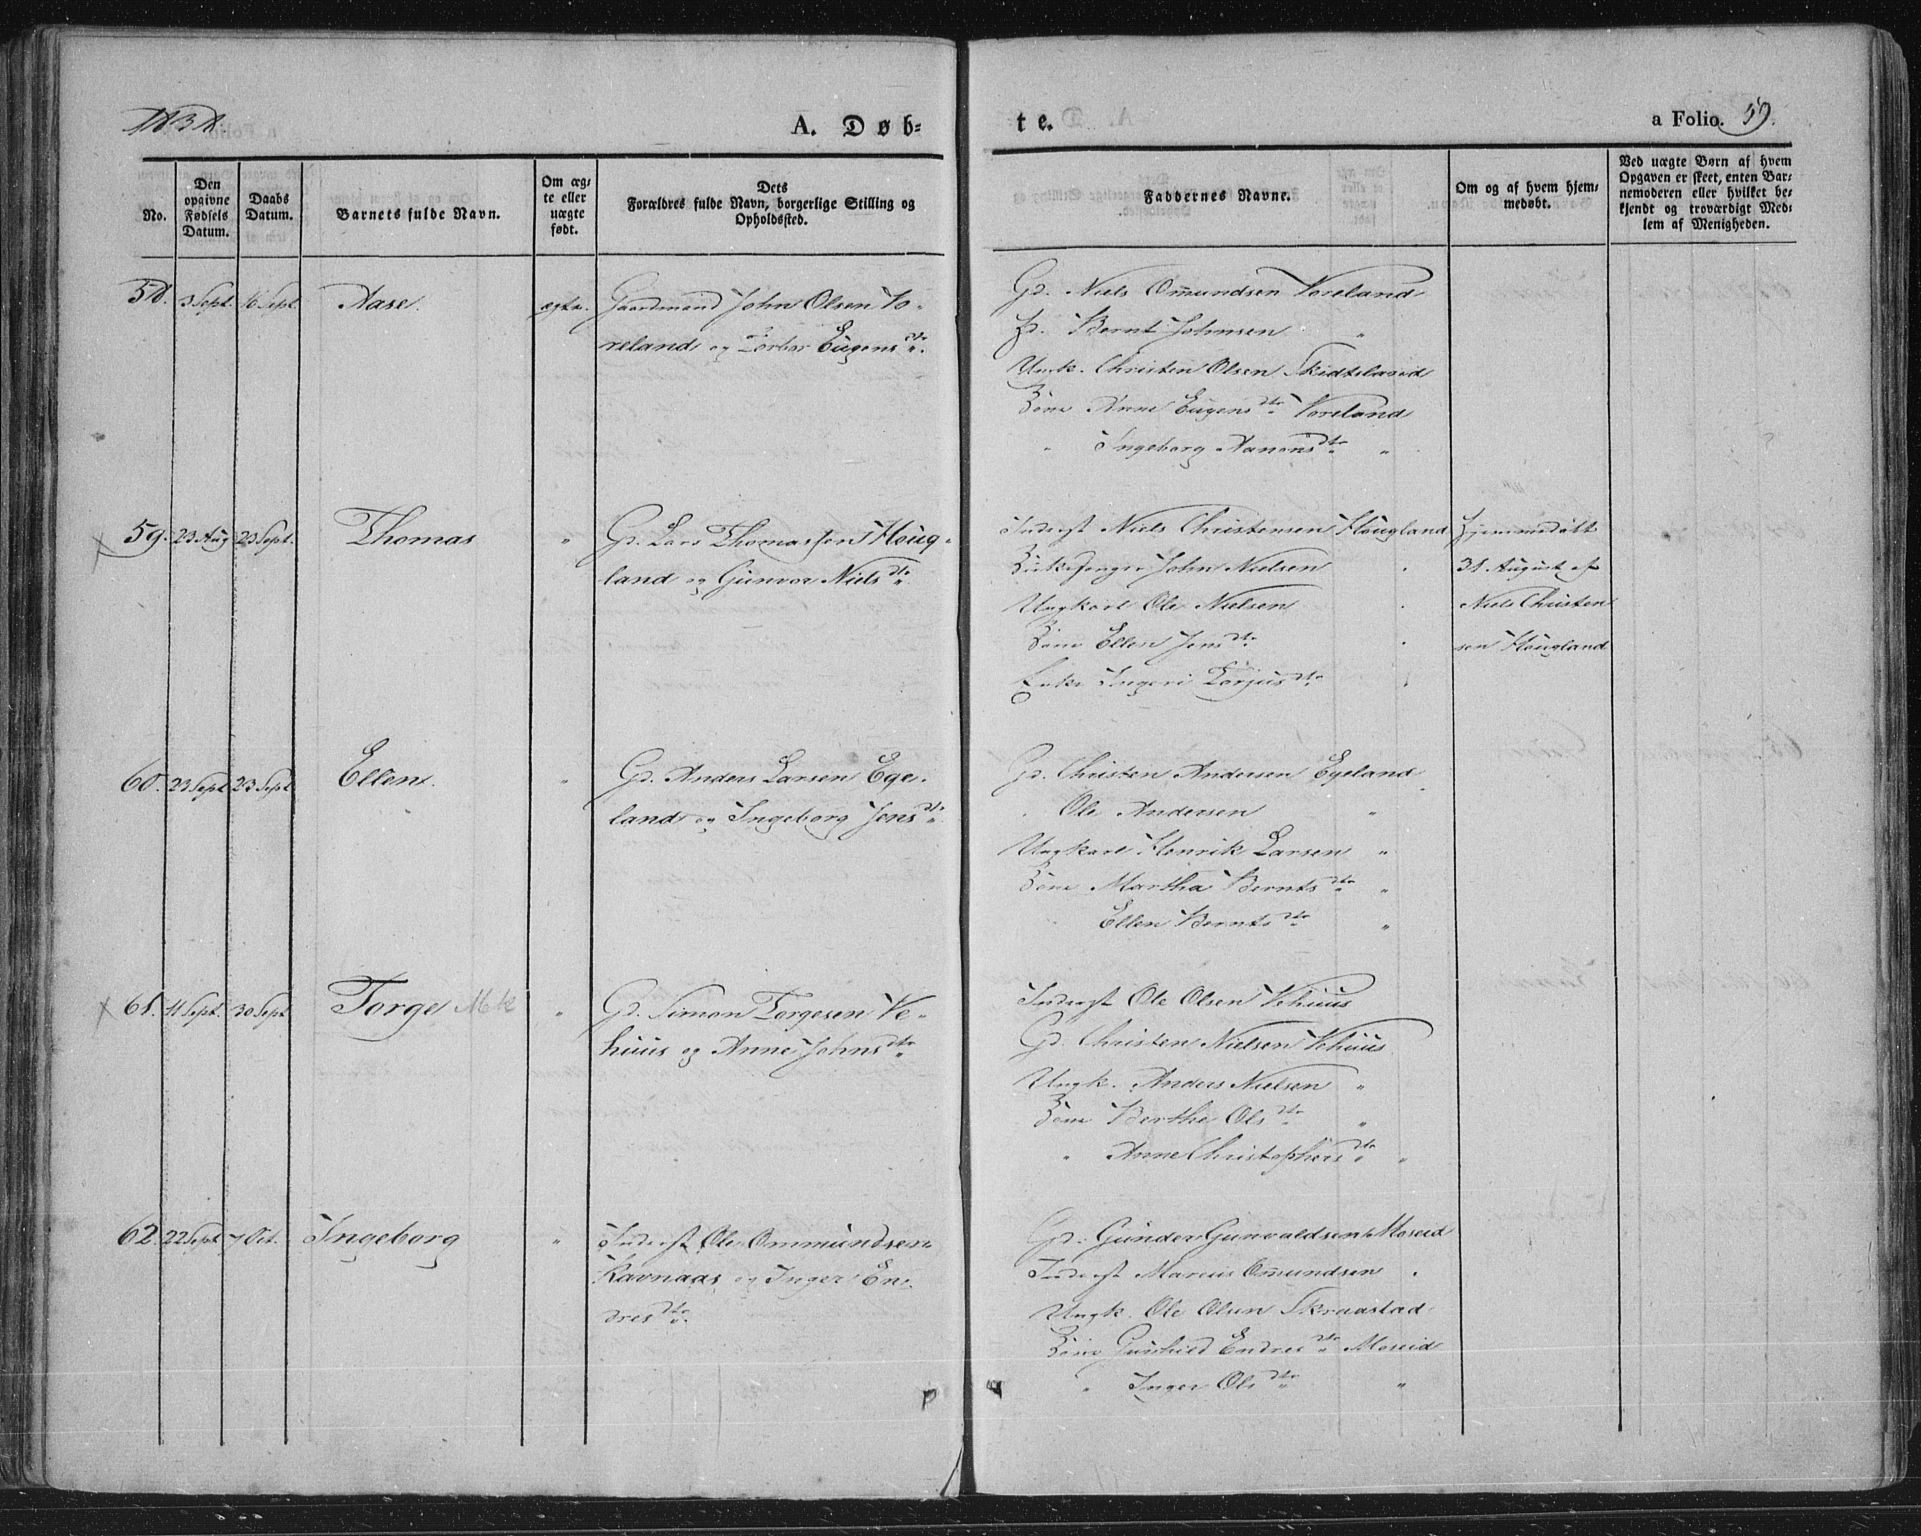 1838.
A. Døb-
te.
a Folio. 59.
No.
Den opgivne Fødsels Datum.
Daabs Datum.
Barnets fulde Navn.
Om ægte eller uægte født.
Dets Forældres fulde Navn, borgerlige Stilling og Opholdssted.
Faddernes Navne.
Om og af hvem hjemmedøbt.
Ved uægte Børn af hvem Opgaven er skeet, enten Barnemoderen eller hvilket bekjendt og troværdigt Medlem af Menigheden.
58. 3 Sept. 16 Sept. Aase. ægte. Gaardmand John Olsen Vo-
reland og Torbor Eugens dtr.
Gd. Niels Omundsen Voreland
Bernt Johnsen "
Ungk. Christen Olsen Skidtsland
Kone Anne Eugens dtr Voreland
" Ingeborg Aanons dtr "
59. 23 Aug 23 Sept. Thomas " Gd. Lars Thomassen Houg-
land og Gunvor Niels dtr.
Inderst Niels Christensen Hougland
Kirkesanger John Nielsen "
Ungkarl Ole Nielsen "
Kone Ellen Jens dtr "
Enke Ingeri Torjus dtr "
Hjemmedøbt
31 August af
Niels Christen
sen Hougland
60. 23 Sept 23 Sept Ellen. " Gd. Anders Larsen Ege-
land og Ingeborg Jens dtr.
Gd. Christen Andersen Egeland
" Ole Andersen "
Ungkarl Henrik Larsen "
Kone Martha Bernts dtr "
Ellen Bernts dtr "
61. 11 Sept. 30 Sept Torge " Gd. Simon Torgesen Ve-
huus og Anne Johns dtr
Inderst Ole Olsen Vehuus
Gd. Christen Nielsen Vehuus
Ungk. Anders Nielsen "
Kone Berthe Ols dtr "
" Anne Christophers dtr "
62. 22 Sept 7 Oct. Ingeborg " Inderst Ole Ommundsen
Ravnaas og Inger En-
dres dtr.
Gd. Gunder Gunvaldsen Moseid
Inderst Marcus Omundsen "
Ungk. Ole Olsen Skraastad
Kone Gunhild Endres dtr Moseid
" Inger Ols dtr "